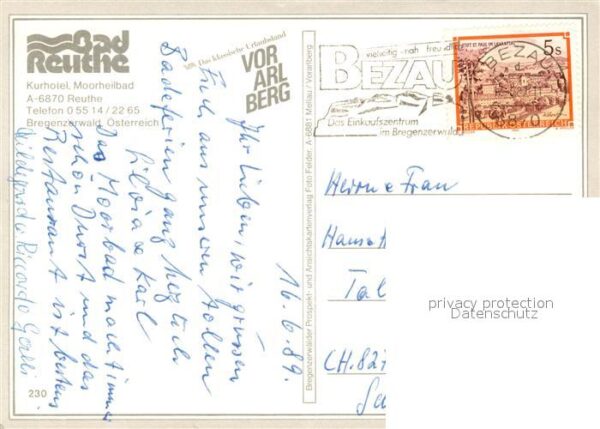 Bad
Reuthe
Kurhotel, Moorheilbad
A-6870 Reuthe
Telefon 0 55 14 / 22 65
Bregenzerwald, Österreich
Das klassische Urlaubsland
VOR
ARL
BERG
16.6.89.
Ihr Lieben, wir grüssen
Euch aus unseren tollen
Badeferien ganz herzlich
Silvia & Karl
Das Moorbad macht immer
schön Durst und das
Restaurant ist bestens
Hildegard & Riccardo
230
Bregenzerwälder Prospekt- und Ansichtskartenverlag Foto Felder, A-6881 Mellau / Vorarlberg
vielseitig - nah - freundlich
BEZAU
Das Einkaufszentrum
im Bregenzerwald
STIFT ST. PAUL IM LAVANTTAL
5s
REPUBLIK ÖSTERREICH
BEZAU
6870
Herrn & Frau
Hans
Tal
CH. 82
privacy protection
Datenschutz